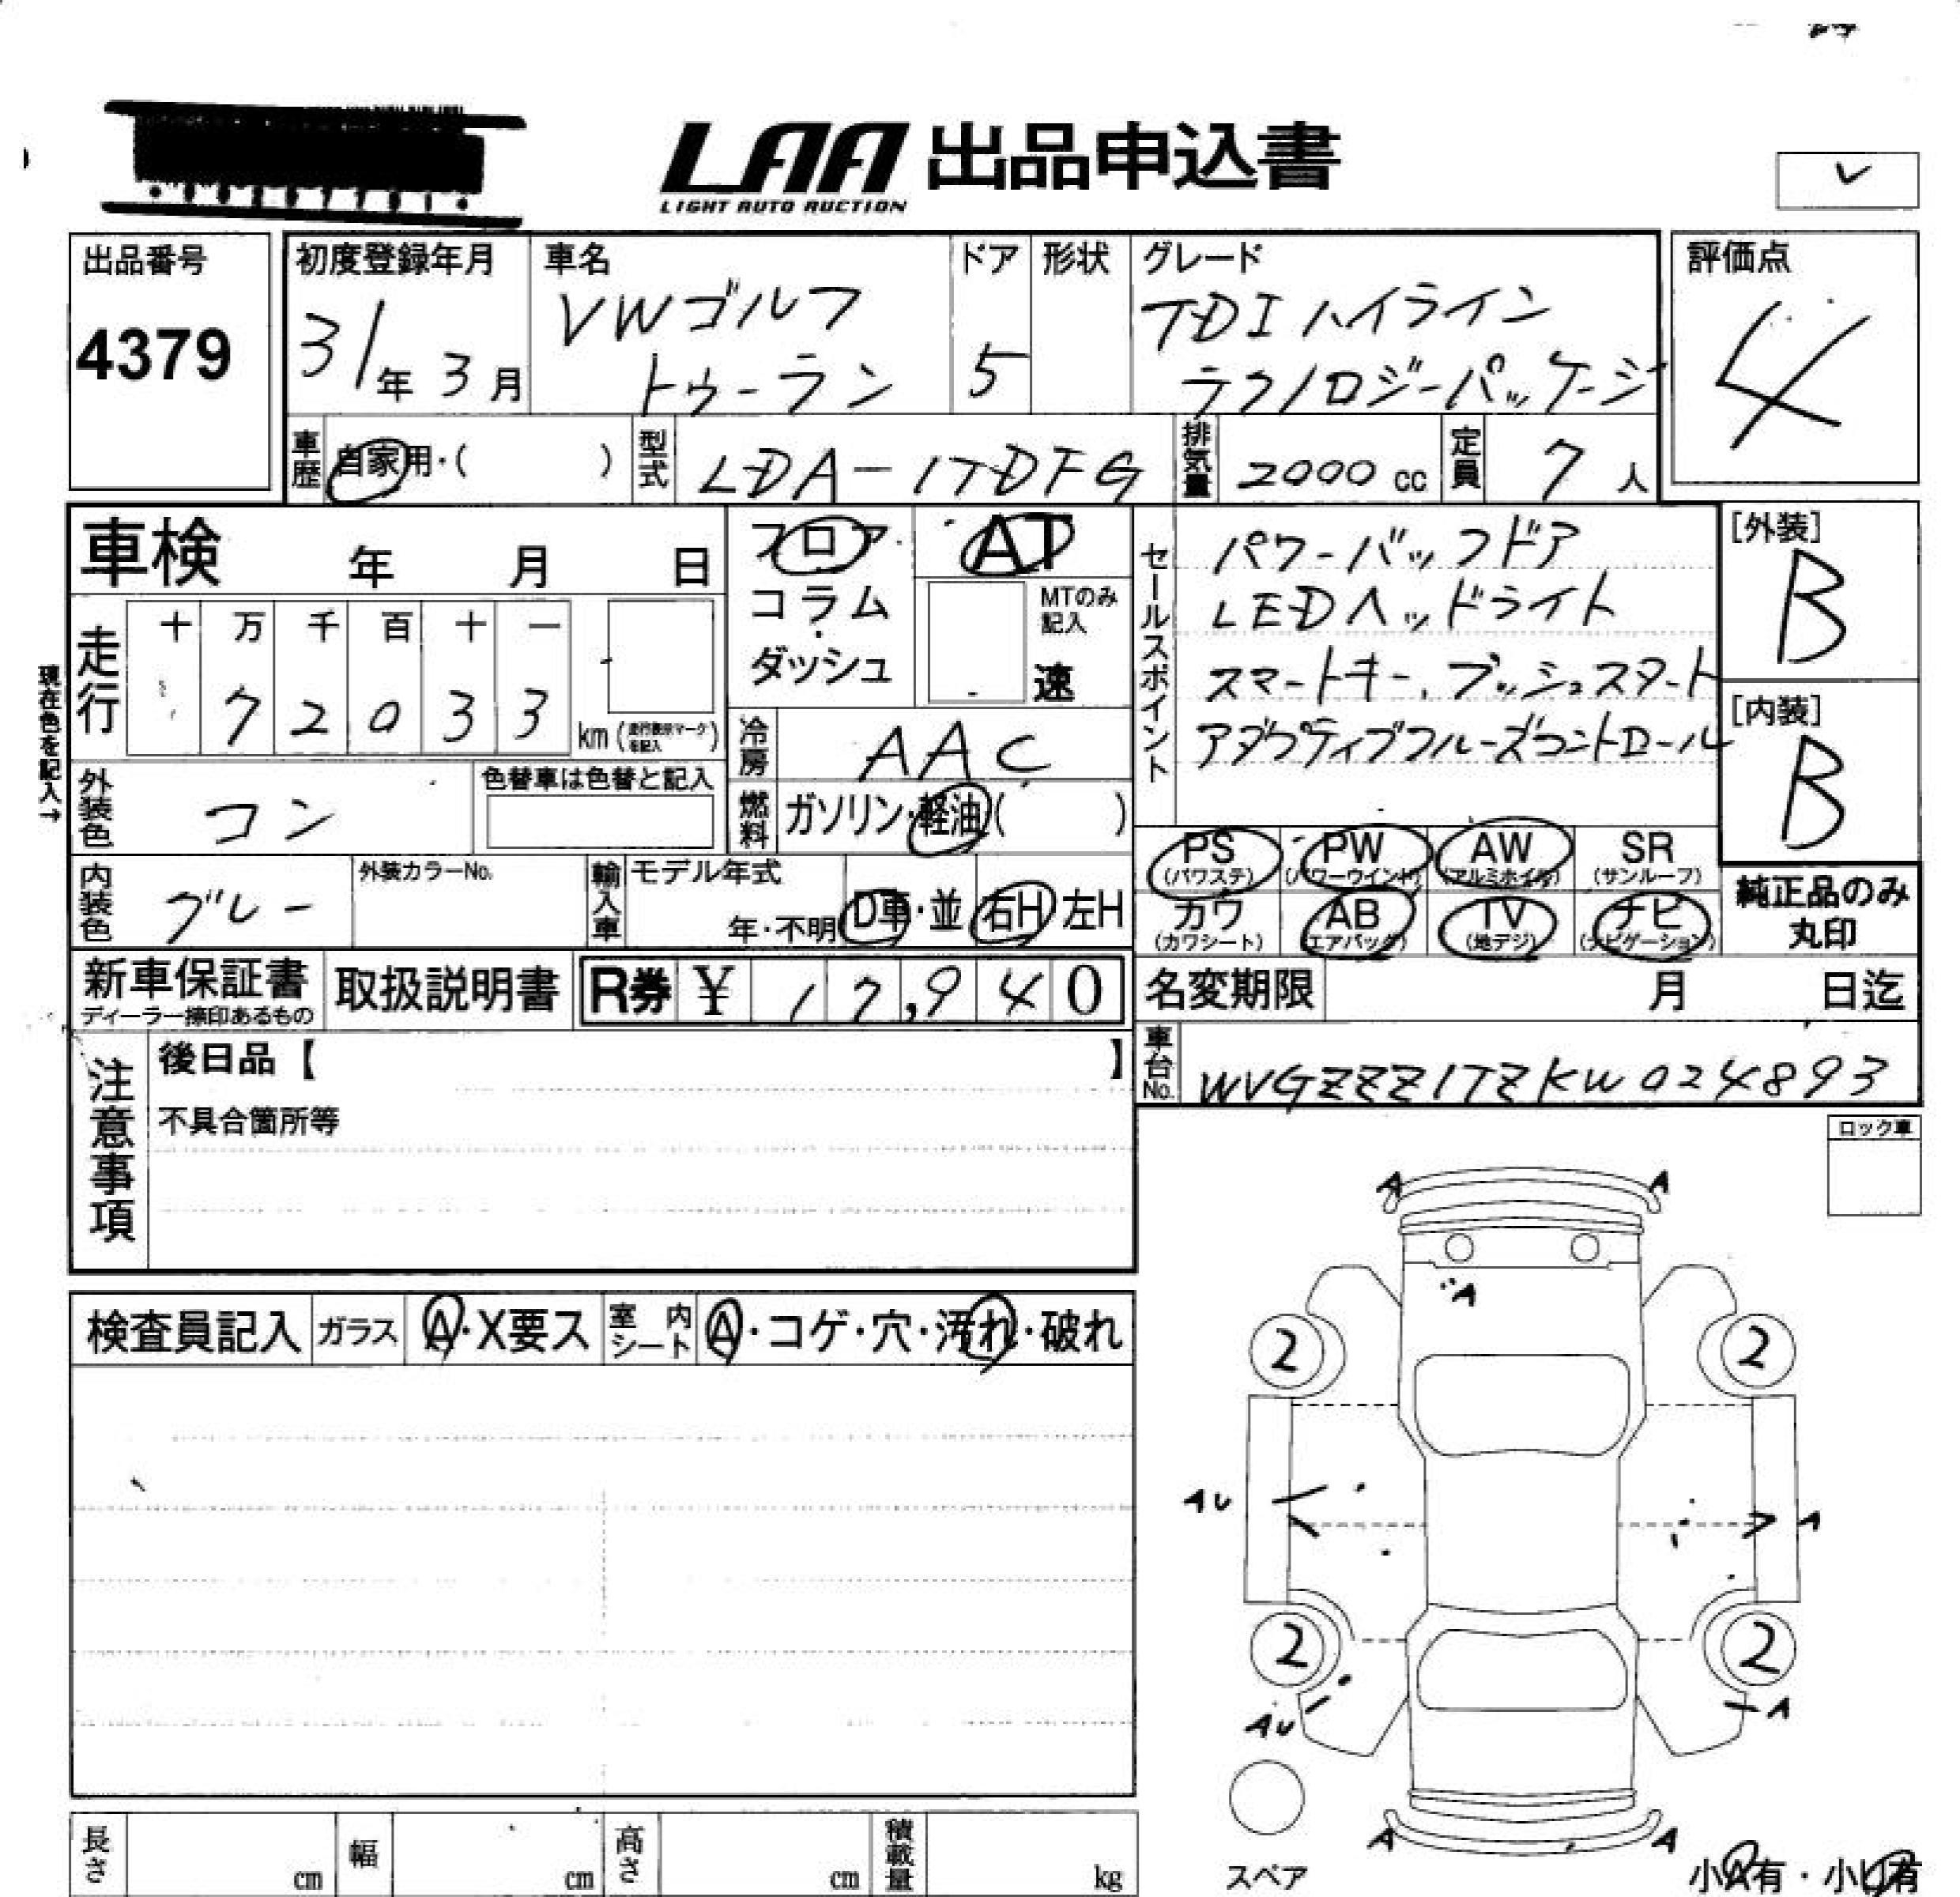 LAA 出品申込書
LIGHT AUTO AUCTION
出品番号
4379
初度登録年月
31年 3月
車名
VWゴルフ
トゥーラン
ドア
5
形状
グレード
TDIハイライン
テクノロジーパッケージ
評価点
4
車歴
自家用・( )
型式
LDA-1TDFG
排気量
2000 cc
定員
7 人
車検 年 月 日
フロア
コラム
ダッシュ
AT
MTのみ記入
速
セールスポイント
パワーバックドア
LEDヘッドライト
スマートキー、プッシュスタート
アダプティブクルーズコントロール
[外装]
B
[内装]
B
現在色を記入→
走行
十 万 千 百 十 一
7 2 0 3 3 km (走行表示マークを記入)
冷房
AAC
外装色
コン
色替車は色替と記入
燃料
ガソリン・軽油( )
PS (パワステ)
PW (パワーウインド)
AW (アルミホイル)
SR (サンルーフ)
カワ (カワシート)
AB (エアバック)
TV (地デジ)
ナビ (ナビゲーション)
純正品のみ
丸印
内装色
グレー
外装カラーNo.
輸入車
モデル年式
年・不明
D車・並
右H 左H
新車保証書
ディーラー捺印あるもの
取扱説明書
R券 ¥ 12,940
名変期限 月 日迄
車台No.
WVGZZZ1TZKW024893
注意事項
後日品【 】
不具合箇所等
ロック車
検査員記入
ガラス
A・X要ス
室内シート
A・コゲ・穴・汚れ・破れ
A A
A
2 2
AU A
2 2
AU A
A A
スペア
小A有・小U有
長さ cm
幅 cm
高さ cm
積載量 kg